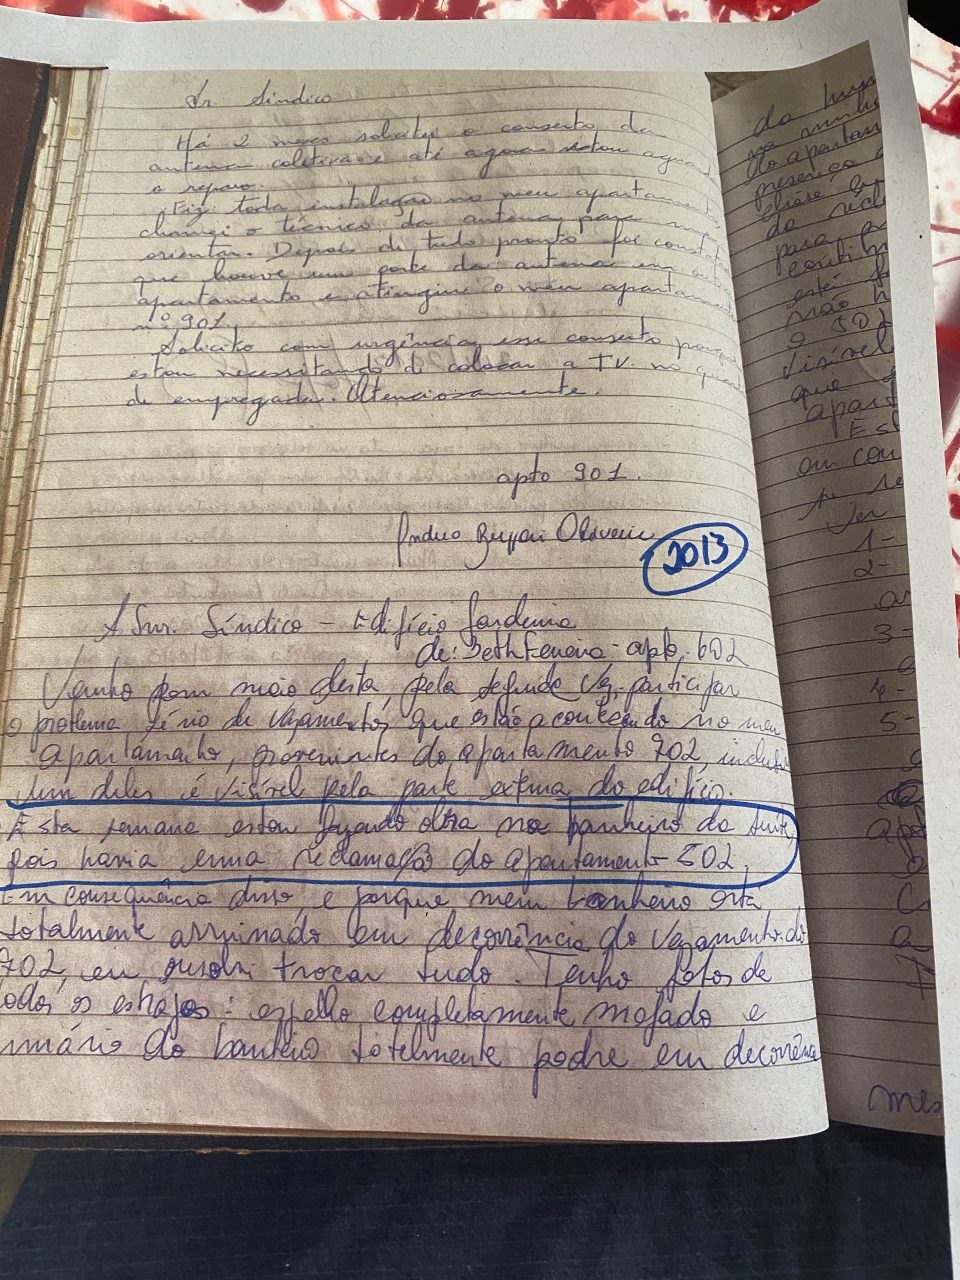 Sr Síndico
Há 2 meses solicitei o conserto da
antena coletiva e até agora estou
o reparo.
Fiz toda instalação no meu apartament
chamei o técnico da antena para
orientar. Depois de tudo pronto foi constat
que houve um corte da antena em
apartamento e atingiu o meu apartament
nº 901.
Solicito com urgência esse conserto porque
estou necessitando de colocar a TV. no quar
de empregada. Atenciosamente.
apto 901.
Oliveira
2013
Síndico - Edifício Jardenia
de: Beth Ferreira - apto. 602
Venho por meio desta, pela segunda vez, participar
o problema sério de vazamentos que estão acontecendo no meu
apartamento, provenientes do apartamento 702, inclusi
um deles é visível pela parte externa do edifício.
Esta semana estou fazendo obra no banheiro da suíte,
pois havia uma reclamação do apartamento 502.
Em consequência disso, e porque meu banheiro está
totalmente arruinado em decorrência do vazamento do
702, eu resolvi trocar tudo. Tenho fotos de
todos os estragos: espelho completamente mofado e
armário do banheiro totalmente podre em decorrência
do
do apartam
não h
o 502
visível
que
apart
Est
1-
2-
3-
4-
5-
mes